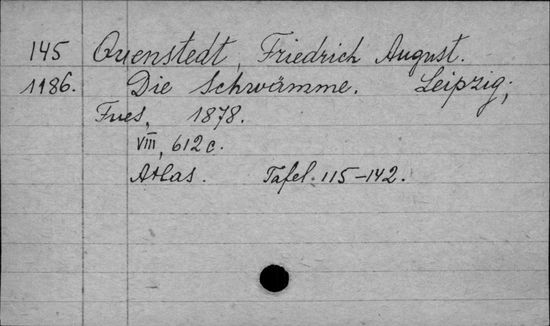 145 Quenstedt, Friedrich August.
1186. Die Schwämme. Leipzig;
Fues, 1878.
VIII, 612 c.
Atlas. Tafel. 115-142.